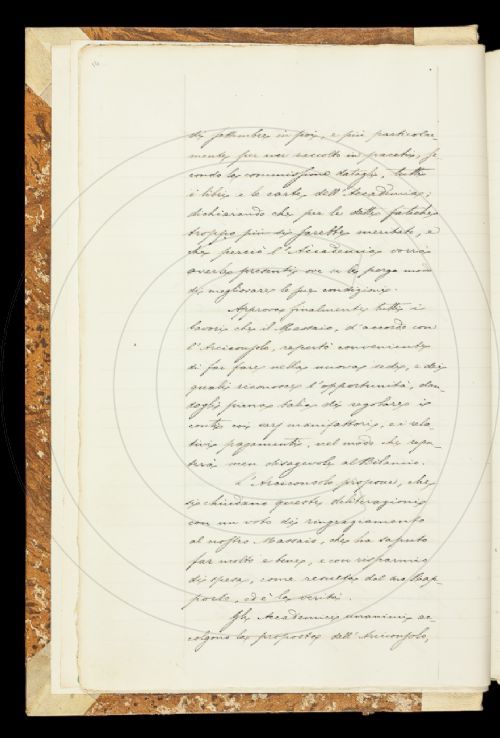 di settembre in poi, e più particolar
mente per aver raccolto in pacchi, se
condo la commissione datagli, tutti
i libri e le carte dell'Accademia;
dichiarando che per le dette fatiche
troppo più di farette meritate, e
che perciò l'Accademia vorrà
averlo presente ove se le porga modo
di migliorare le sue condizioni.
Approva finalmente tutti i
lavori che il Massaio, d'accordo con
l'Arciconsolo, reputò conveniente
di far fare nella nuova sede, e dei
quali riconosce l'opportunità, dan-
dogli piena balìa di regolare i
conti coi vari manifattori, e i rela-
tivi pagamenti, nel modo che repu-
terà men disagevole al Bilancio.
L'Arciconsolo propone, che
si chiudano queste deliberazioni
con un voto di ringraziamento
al nostro Massaio, che ha saputo
far molto e bene, e con risparmio
di spesa, come resulta dal suo Rap-
porto, ed è la verità.
Gli Accademici unanimi ac-
colgono la proposta dell'Arciconsolo,